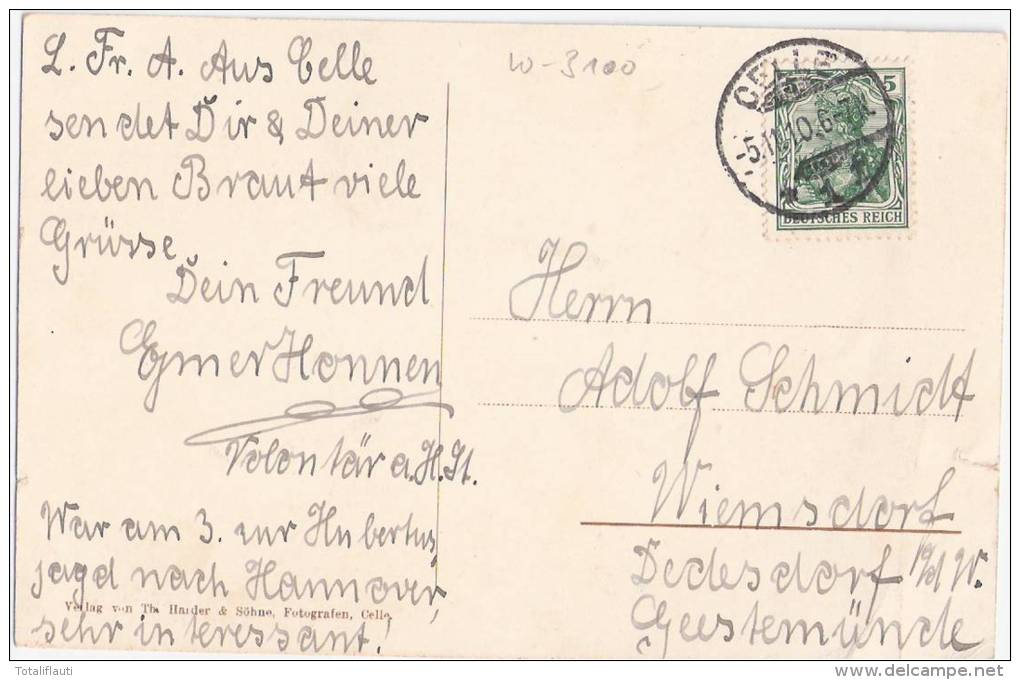 L. Fr. A. Aus Celle
sendet Dir & Deiner
lieben Braut viele
Grüsse
Dein Freund
Egmer Honnen
Volontär a. H. St.
War am 3. zur Hubertus,
jagd nach Hannover,
Verlag von Th. Harder & Söhne, Fotografen, Celle.
sehr interessant!
W-3100
CELLE
-5.11.10.6-7N
* 1
5
DEUTSCHES REICH
Herrn
Adolf Schmidt
Wiemsdorf
Dedesdorf a/d W.
Geestemünde
Totaliflauti
www.delcampe.net